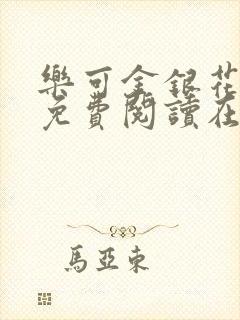 樂可金銀花
免費閱讀在
馬亞東